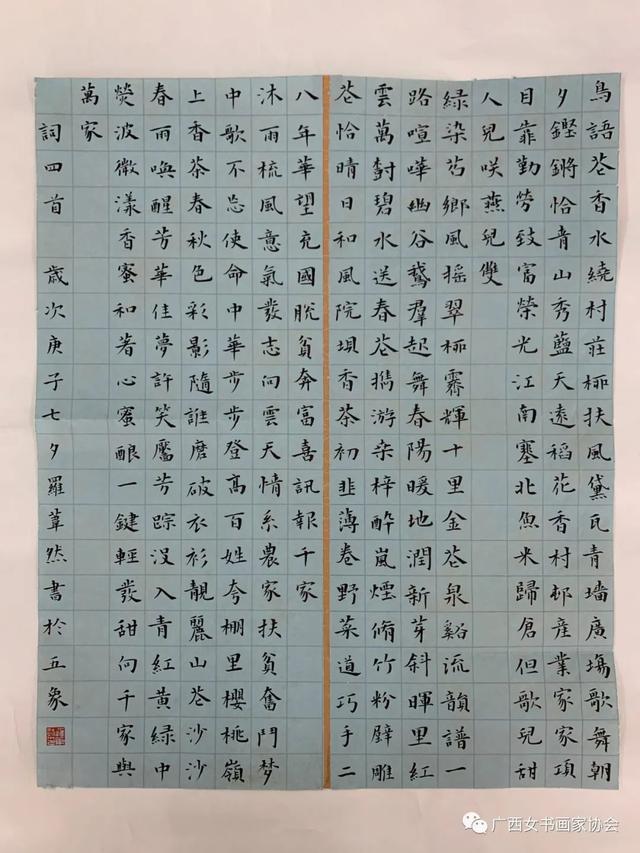 鳥語花香水繞村莊柳扶風黛瓦青墻廣場歌舞朝
夕鏗鏘恰青山秀藍天遠稻花香村邨產業家家項
目靠勤勞致富榮光江南塞北魚米歸倉但歌兒甜
人兒咲燕兒雙
綠染芍鄉風搖翠柳霽輝十里金花泉谿流韻譜一
路喧嘩幽谷鵞群起舞春陽暖地潤新芽斜暉里紅
雲萬封碧水送春花攜游亲梓醉嵐煙脩竹粉壁雕
花恰晴日和風院壩香茶初韭薄卷野菜道巧手二
八年華望充國脫貧奔富喜訊報千家
沐雨梳風意氣發志向雲天情系農家扶貧奮鬥梦
中歌不忘使命中華步步登高百姓夸棚里櫻桃嶺
上香茶春秋色彩影隨誰磨破衣衫靚麗山花沙沙
春雨喚醒芳華佳夢許笑靨芳踪沒入青紅黃綠中
熒波微漾香蜜和著心蜜釀一鍵輕發甜向千家與
萬家
詞四首 歲次庚子七夕羅葦然書於五象
广西女书画家协会